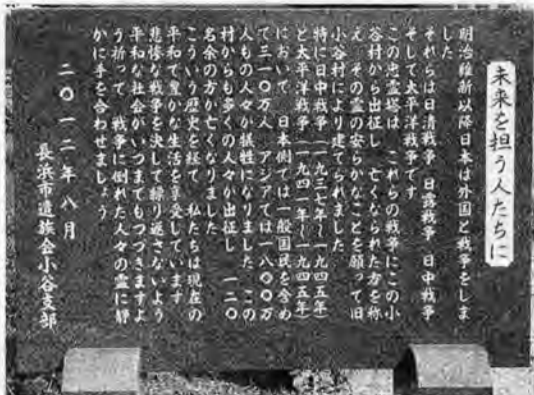 未来を担う人たちに
明治維新以降日本は外国と戦争をしま
した
それらは日清戦争 日露戦争 日中戦争
そして太平洋戦争です
この忠霊塔は これらの戦争にこの小
谷村から出征し 亡くなられた方を称
え その霊の安らかなことを願って旧
小谷村により建てられました
特に日中戦争(一九三七年〜一九四五年)
と太平洋戦争(一九四一年〜一九四五年)
において 日本側では一般国民を含め
て三一〇万人 アジアでは一八〇〇万
人もの人々が犠牲になりました この
村からも多くの人々が出征し 一二〇
名余の方が亡くなりました
こういう歴史を経て 私たちは現在の
平和で豊かな生活を享受しています
悲惨な戦争を決して繰り返さないよう
平和な社会がいつまでもつづきますよ
う祈って 戦争に倒れた人々の霊に静
かに手を合わせましょう
二〇一二年八月
長浜市遺族会小谷支部